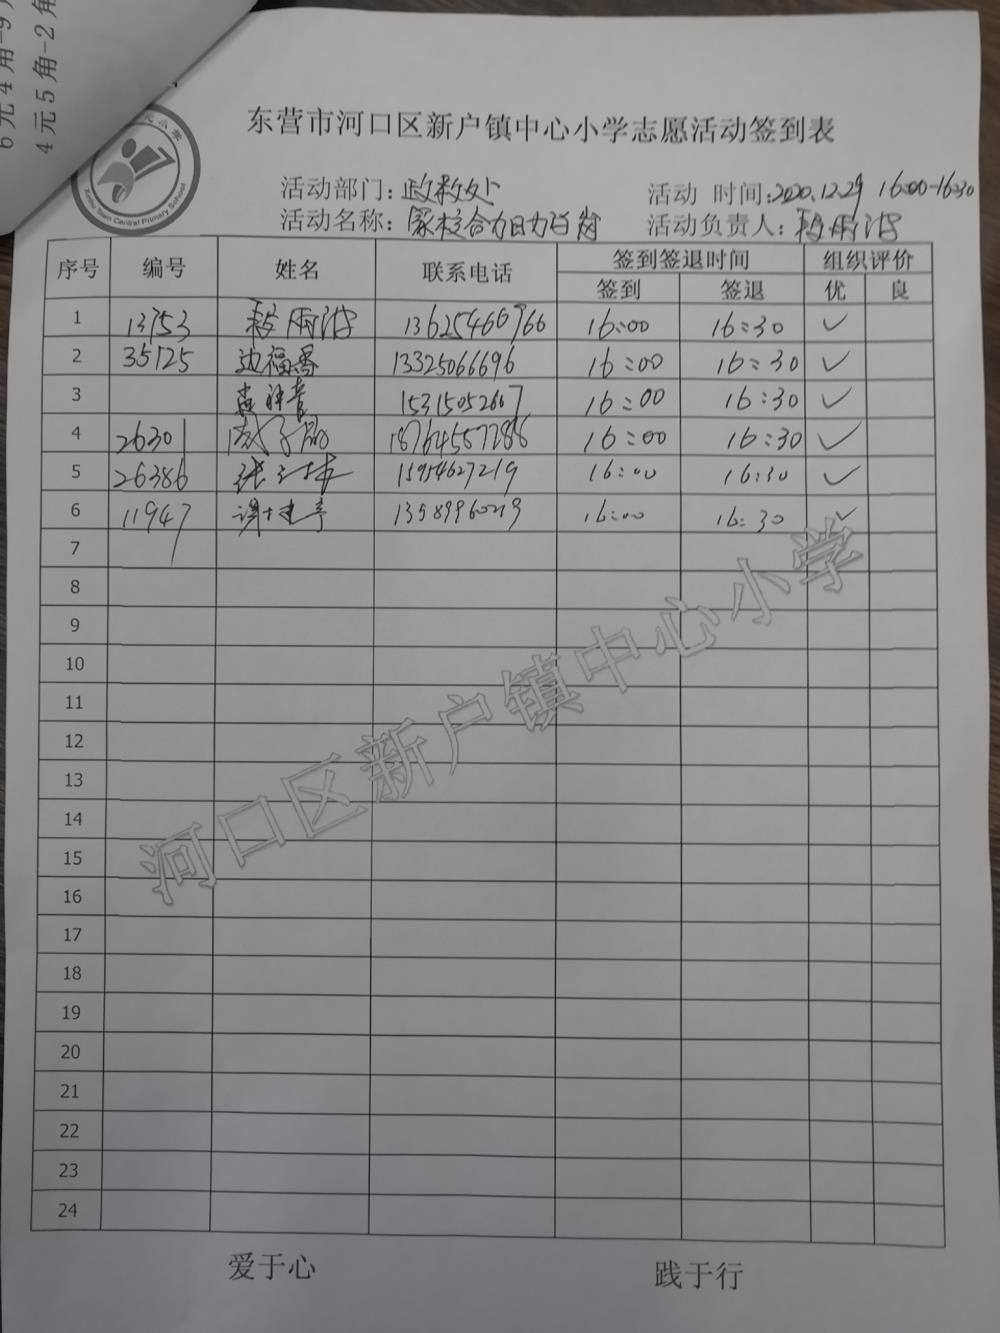 6元4角-9
4元5角-2角
Xinhu Town Central Primary School
东营市河口区新户镇中心小学志愿活动签到表
活动部门：政教处 活动 时间：2020.12.29 16:00-16:30
活动名称：家校合力 活动负责人：
序号 编号 姓名 联系电话 签到签退时间 组织评价
签到 签退 优 良
1 13153 13625466766 16:00 16:30 ✓
2 35125 边福香 13325066696 16:00 16:30 ✓
3 15315052667 16:00 16:30 ✓
4 26301 18764557288 16:00 16:30 ✓
5 26386 15954627219 16:00 16:30 ✓
6 11947 16:00 16:30 ✓
7
8
9
10
11
12
13
14
15
16
17
18
19
20
21
22
23
24
河口区新户镇中心小学
爱于心 践于行